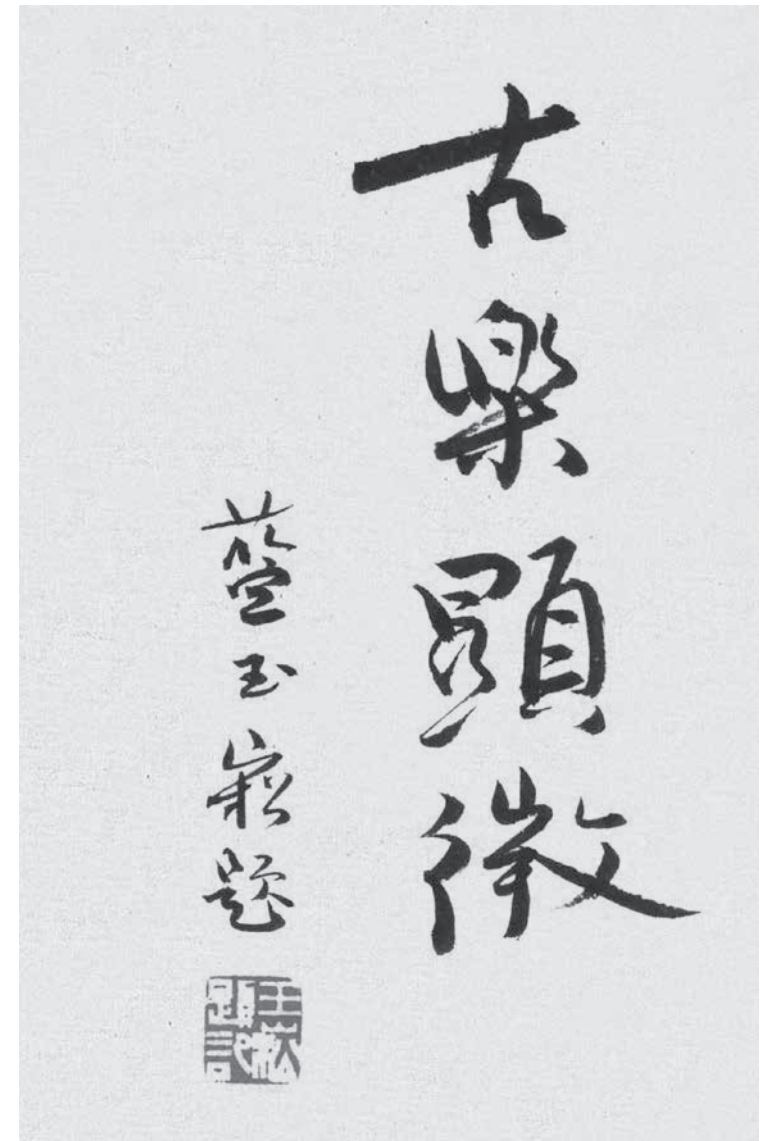 古樂顯微
藍玉崧題
玉崧題記